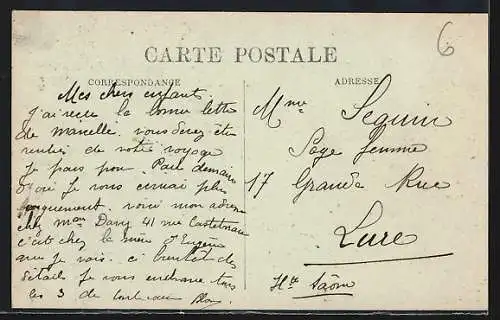 6
CARTE POSTALE
CORRESPONDANCE
ADRESSE
Mes chers enfants.
j'ai reçu la bonne lettre
de Marcelle. vous devez être
rentrés de votre voyage
je pars pour Paris demain
d'où je vous écrirai plus
longuement. voici mon adresse
chez Mme Dary 41 rue Castelnau
c'est chez la mère d'Eugénie
que je vais. ci bientôt des
détails je vous embrasse tous
les 3 de tout cœur
Mme Seguin
Sage femme
17 Grande Rue
Lure
Hte Saône